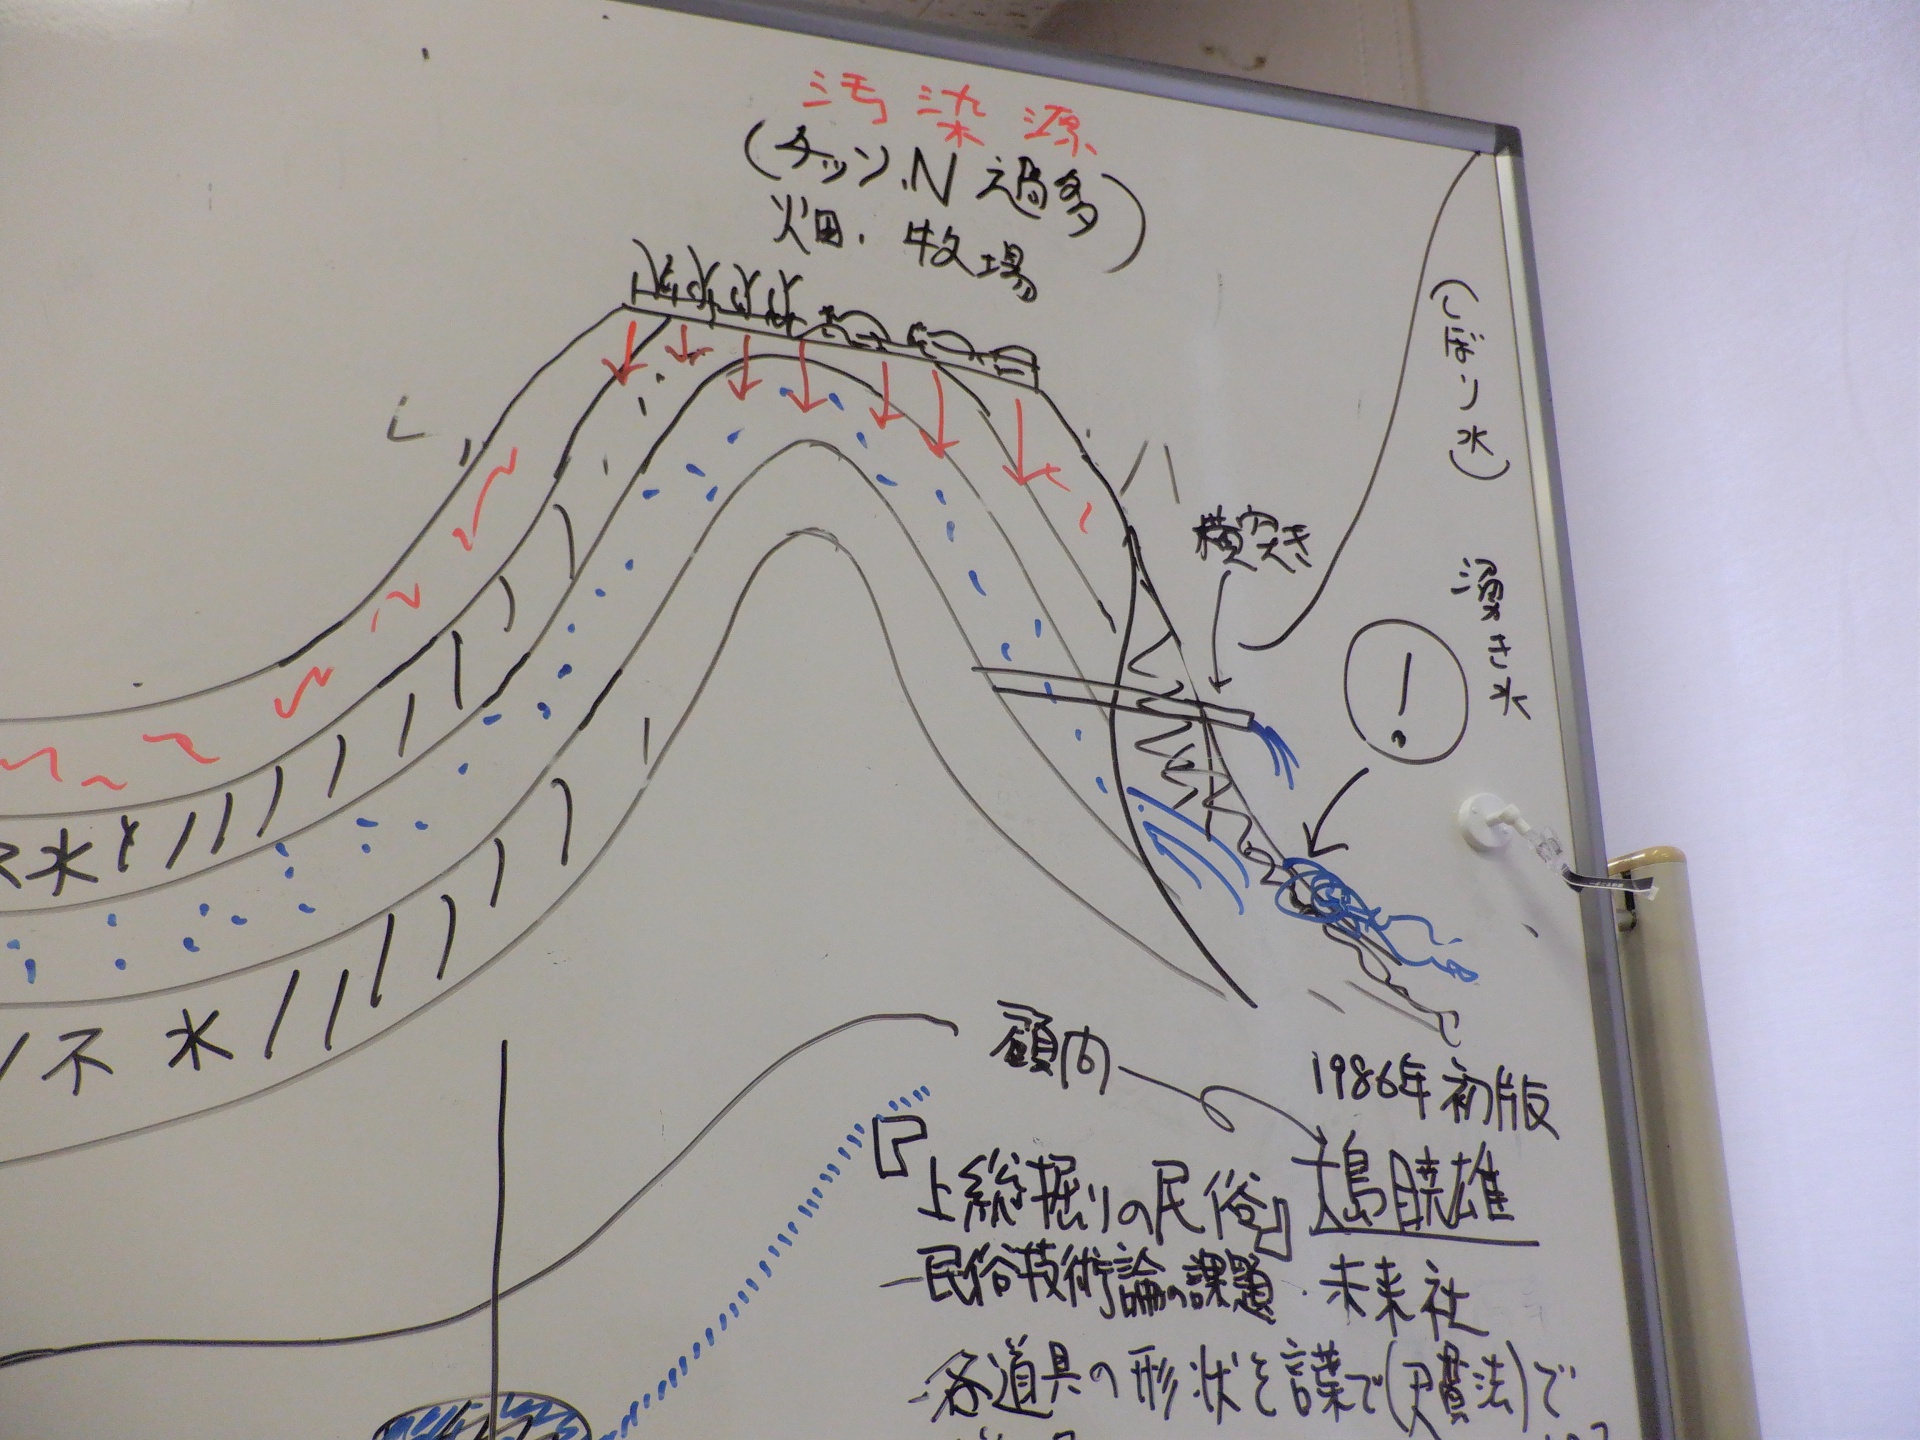 汚染源
(チッソ、N 過多)
畑・牧場
(しぼり水)
横突き
湧き水
!
不水
不水
嶺内
1986年初版
『上総掘りの民俗』大島暁雄
―民俗技術論の課題・未来社
各道具の形状を言葉で(尺貫法)で